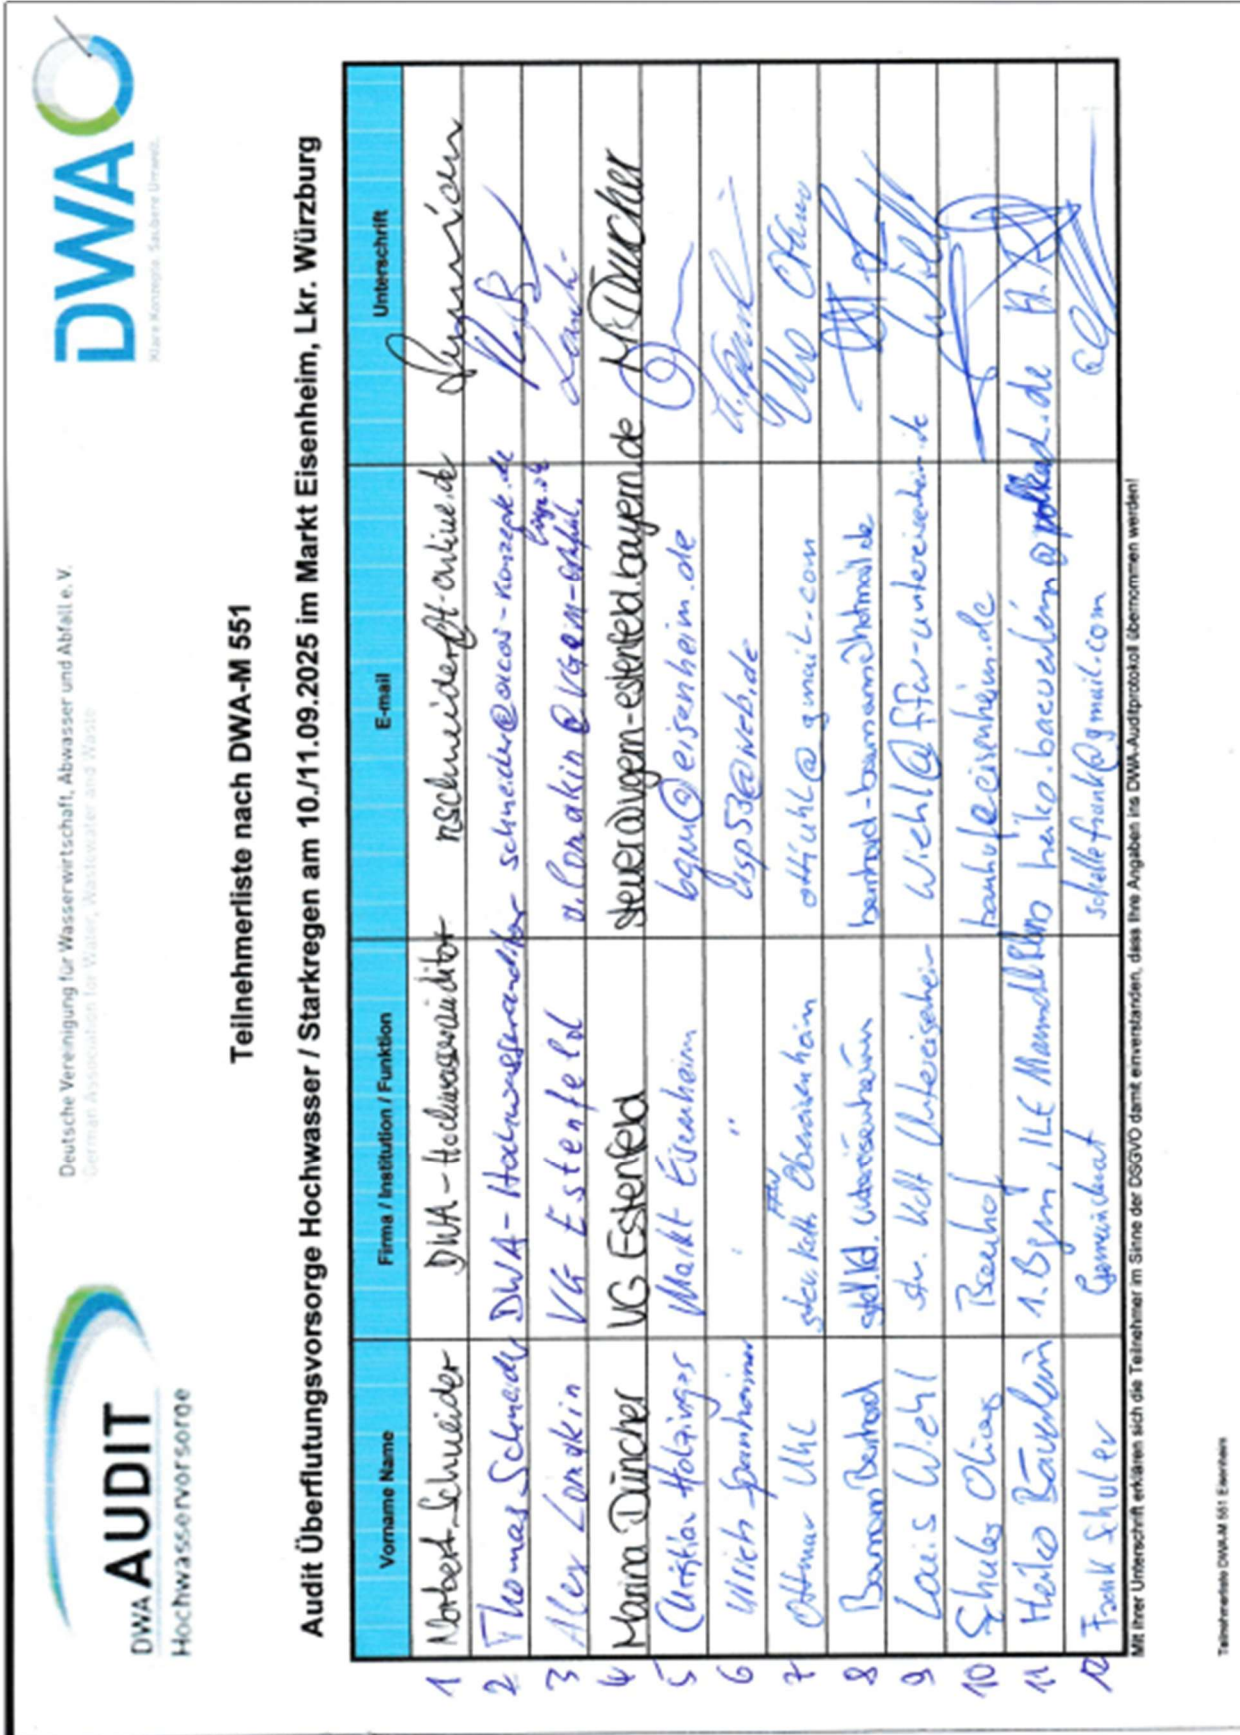 DWA AUDIT
Hochwasservorsorge
Deutsche Vereinigung für Wasserwirtschaft, Abwasser und Abfall e. V.
German Association for Water, Wastewater and Waste
DWA
Klare Konzepte. Saubere Umwelt.
Teilnehmerliste nach DWA-M 551
Audit Überflutungsvorsorge Hochwasser / Starkregen am 10./11.09.2025 im Markt Eisenheim, Lkr. Würzburg
Vorname Name Firma / Institution / Funktion E-mail Unterschrift
1 Norbert Schneider DWA-Hochwasserauditor
2 Thomas Schneider DWA-Hochwasserauditor
3 Alex Londkin VG Estenfeld
4 Marina Düncher VG Estenfeld steuer@vgem-estenfeld.bayern.de M. Düncher
5 Christian Holzinger Markt Eisenheim bgm@eisenheim.de
6 Ullrich Spanheimer " usp53@web.de
7 Ottmar Uhl FFW Obereisenheim ottiuhl@gmail.com
8 Baumann Bernhard stell. Kd. Untereisenheim
9 Louis Wiehl str. Kdt Untereisenheim wiehl@ffw-untereisenheim.de
10 Schuler Oliver Bauhof
11 Heiko Bäuerlein 1. Bgm, ILE heiko.baeuerlein@volkach.de
12 Frank Schuler Gemeinderat
Mit ihrer Unterschrift erklären sich die Teilnehmer im Sinne der DSGVO damit einverstanden, dass Ihre Angaben ins DWA-Auditprotokoll übernommen werden!
Teilnehmerliste DWA-M 551 Eisenheim